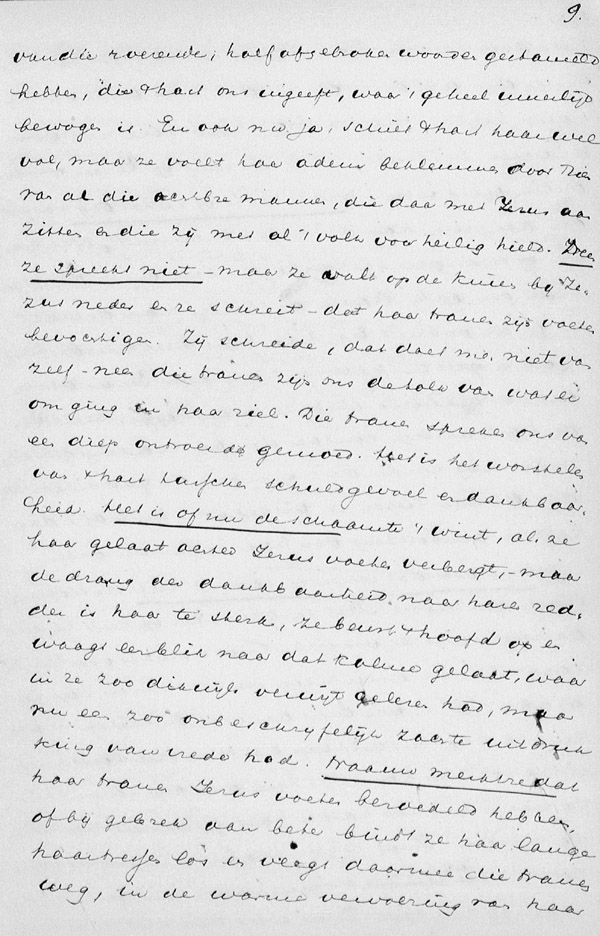 9.
van die roerende, half afgebroken woorden gestameld
hebben, die 't hart ons ingeeft, waar 't geheel innerlijk
bewogen is. En ook nu ja, schiet 't hart haar wel
vol, maar ze voelt haar adem beklemmen door
van al die achtbre mannen, die daar met Jezus aan
zitten en die zij met al 't volk voor heilig hield. Neen
ze spreekt niet – maar ze valt op de knieën bij Je-
zus neder en ze schreit – dat haar tranen zijn voeten
bevochtigen. Zij schreide, dat doet men niet van
zelf – neen die tranen zijn ons de tolk van wat er
om ging in haar ziel. Die tranen spreken ons van
een diep ontroerd gemoed. Het is het worstelen
van 't hart tusschen schuldgevoel en dankbaar-
heid. Het is of nu de schaamte 't wint, als ze
haar gelaat achter Jezus voeten verbergt, – maar
de drang der dankbaarheid naar haren red-
der is haar te sterk, ze beurt 't hoofd op en
waagt een blik naar dat kalme gelaat, waar
in ze zoo dikwijls verwijt gelezen had, maar
nu een zoo onbeschryfelijk zachte uitdruk
king van vrede had. Nauw merkt ze dat
haar tranen Jezus voeten bevochtigd hebben,
of bij gebrek van beter bindt ze haar lange
haartressen los en veegt daarmee die tranen
weg, in de warme vervoering van haar